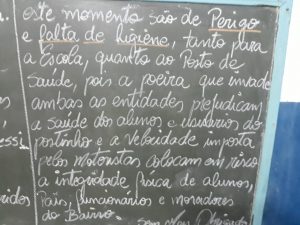 este momento são de Perigo
e falta de higiene, tanto para
a Escola, quanto ao Posto de
saúde, pois a poeira que invade
ambas as entidades prejudicam
a saúde dos alunos e usuários do
postinho e a velocidade imposta
pelos motoristas colocam em risco
a integridade física de alunos,
Pais, funcionários e moradores
do Bairro.